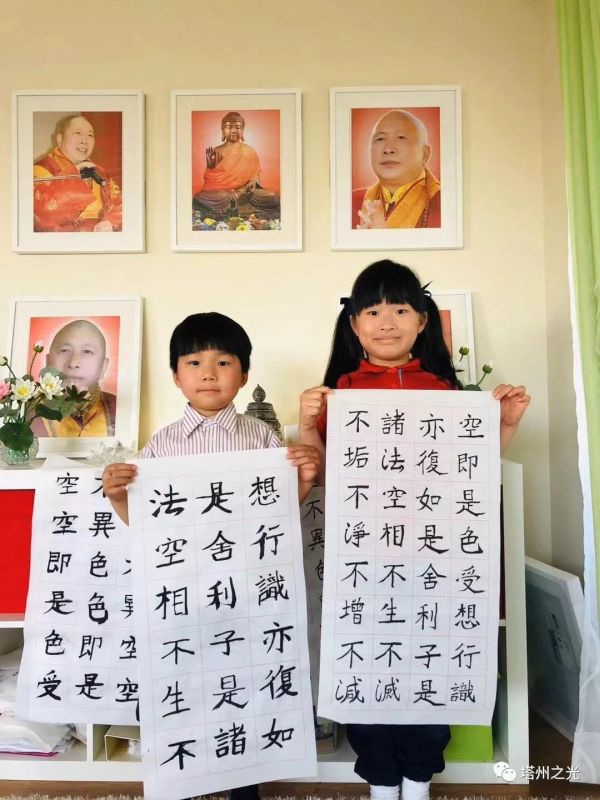 空即是色受想行識
亦復如是舍利子是
諸法空相不生不滅
不垢不淨不增不減
想行識亦復如
是舍利子是諸
法空相不生不
不異空空
不異色色即是
空空即是色受
不異色
塔州之光